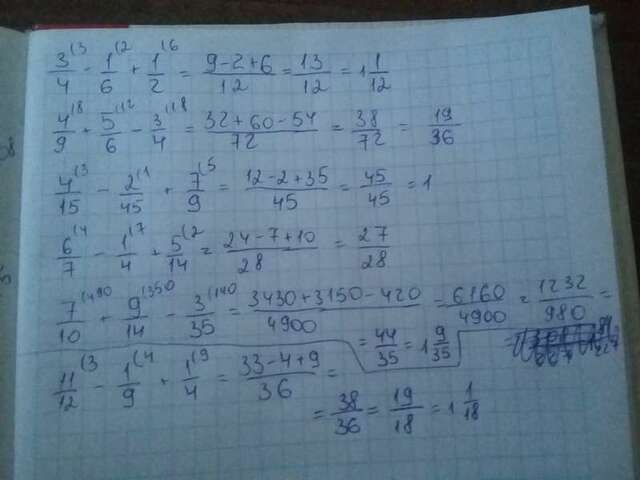 3/4 (3 - 1/6 (2 + 1/2 (6 = 9-2+6/12 = 13/12 = 1 1/12
4/9 (8 + 5/6 (12 - 3/4 (18 = 32+60-54/72 = 38/72 = 19/36
4/15 (3 - 2/45 (1 + 7/9 (5 = 12-2+35/45 = 45/45 = 1
6/7 (4 - 1/4 (7 + 5/14 (2 = 24-7+10/28 = 27/28
7/10 (490 + 9/14 (350 - 3/35 (140 = 3430+3150-420/4900 = 6160/4900 = 1232/980 =
= 44/35 = 1 9/35
11/12 (3 - 1/9 (4 + 1/4 (9 = 33-4+9/36 =
= 38/36 = 19/18 = 1 1/18